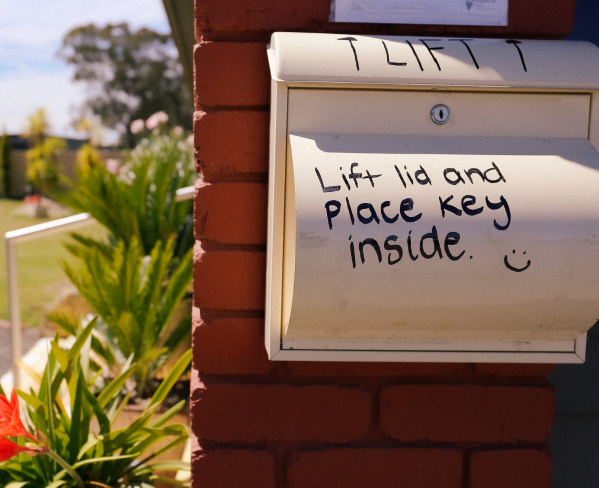 ↑ LIFT ↑
Lift lid and
Place Key
inside. :)